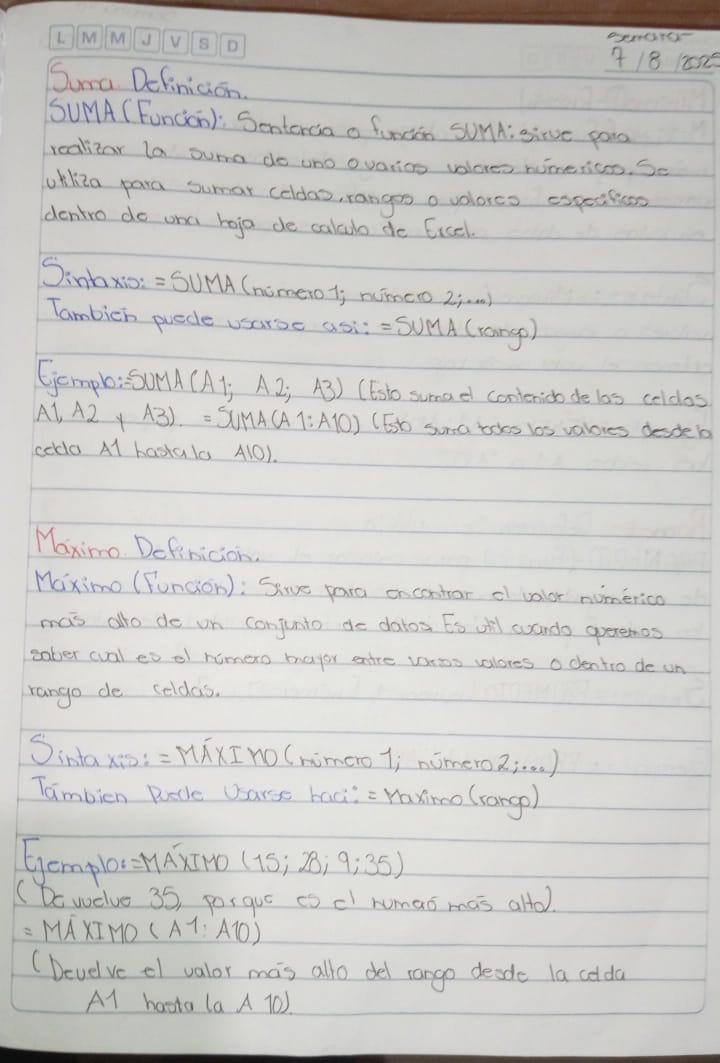 L M M J V S D
7/8/2025
Suma Definición.
SUMA (Función): Sentencia o función SUMA: sirve para
realizar la suma de uno o varios valores númericos. Se
utiliza para sumar celdas, rangos o valores específicos
dentro de una hoja de calculo de Excel.
Sintaxis: =SUMA(número 1; número 2;...)
Tambien puede usarse asi: =SUMA(rango)
Ejemplo: =SUMA(A1; A2; A3) (Esto suma el contenido de las celdas
A1, A2 y A3). =SUMA(A1:A10) (Esto suma todos los valores desde la
celda A1 hasta la A10).
Máximo Definicion.
Máximo (Función): Sirve para encontrar el valor numérico
más alto de un conjunto de datos Es útil cuando queremos
saber cual es el número mayor entre varios valores o dentro de un
rango de celdas.
Sintaxis: =MÁXIMO(número 1; número 2;...)
Támbien puede usarse haci: =Maximo(rango)
Ejemplo: =MÁXIMO (15; 28; 9; 35)
(Devuelve 35, porque es el numero más alto).
=MÁXIMO (A1: A10)
(Devuelve el valor más alto del rango desde la celda
A1 hasta la A10).